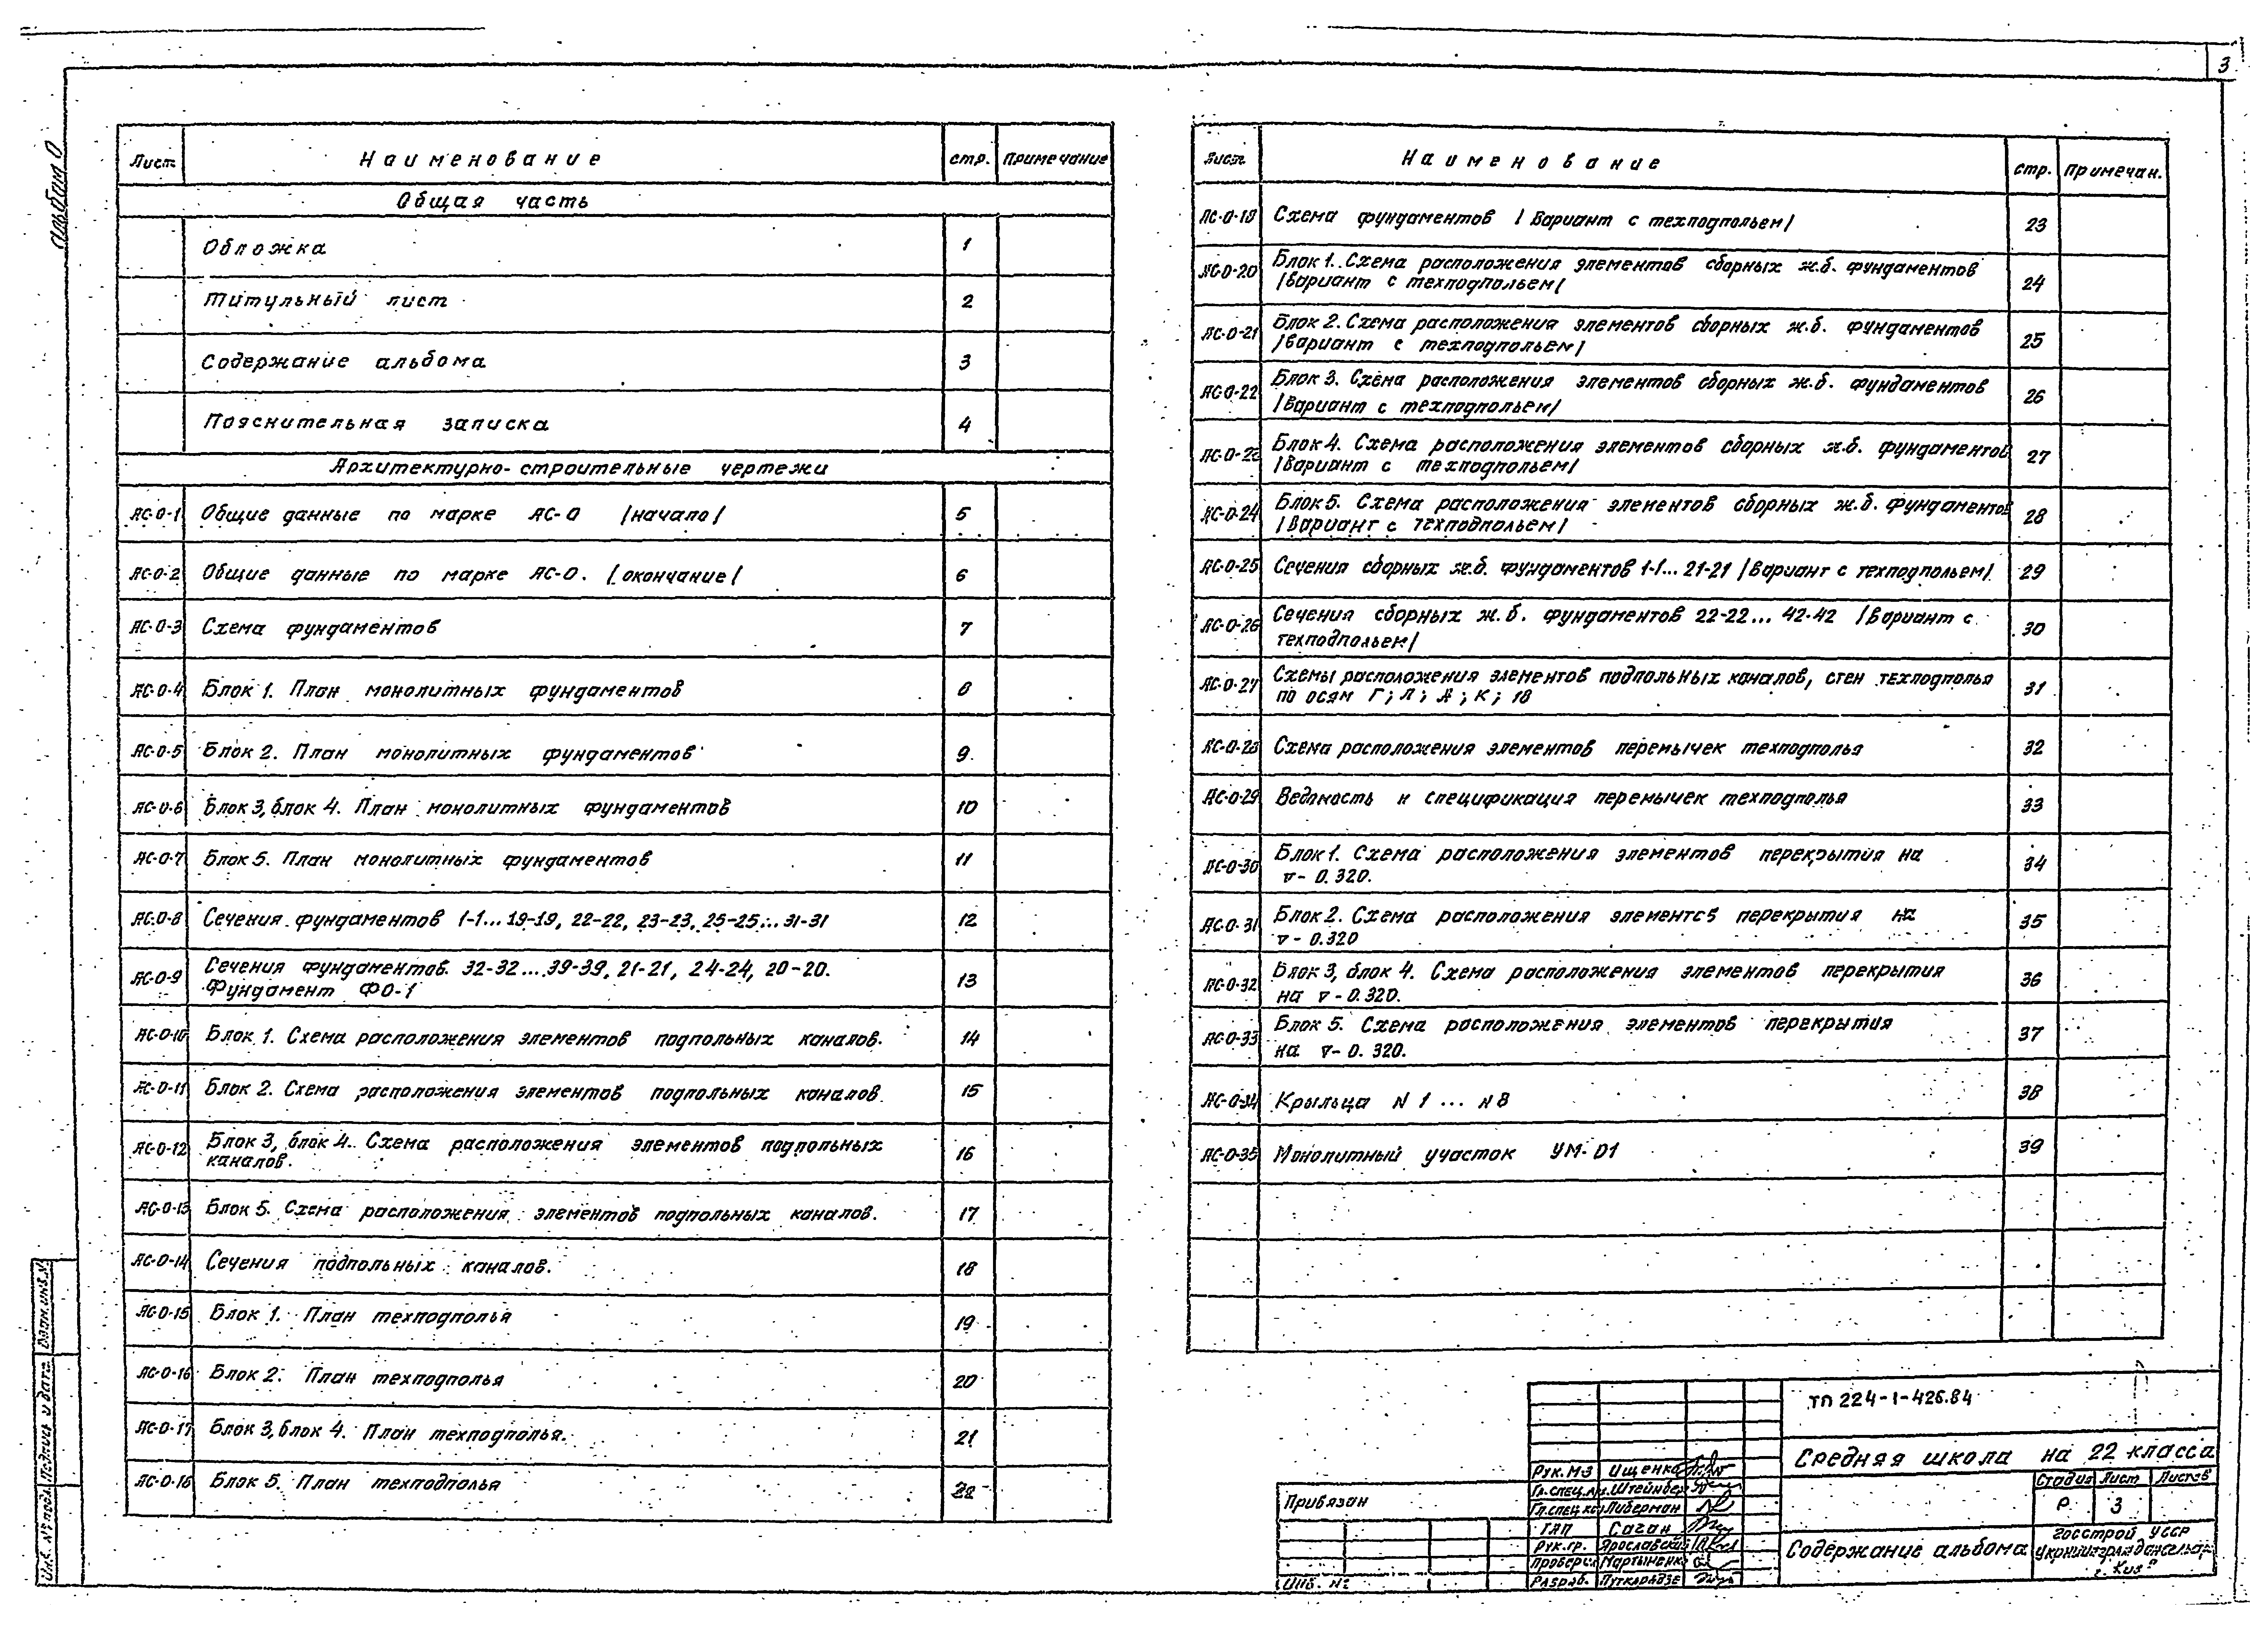 3
Альбом 0
Лист Наименование стр. Примечание
Общая часть
Обложка 1
Титульный лист 2
Содержание альбома 3
Пояснительная записка 4
Архитектурно-строительные чертежи
АС-0-1 Общие данные по марке АС-0 /начало/ 5
АС-0-2 Общие данные по марке АС-0. /окончание/ 6
АС-0-3 Схема фундаментов 7
АС-0-4 Блок 1. План монолитных фундаментов 8
АС-0-5 Блок 2. План монолитных фундаментов 9
АС-0-6 Блок 3, блок 4. План монолитных фундаментов 10
АС-0-7 Блок 5. План монолитных фундаментов 11
АС-0-8 Сечения фундаментов 1-1... 19-19, 22-22, 23-23, 25-25... 31-31 12
АС-0-9 Сечения фундаментов 32-32... 39-39, 21-21, 24-24, 20-20. 13
Фундамент Ф0-1
АС-0-10 Блок 1. Схема расположения элементов подпольных каналов. 14
АС-0-11 Блок 2. Схема расположения элементов подпольных каналов. 15
АС-0-12 Блок 3, блок 4. Схема расположения элементов подпольных 16
каналов.
АС-0-13 Блок 5. Схема расположения элементов подпольных каналов. 17
АС-0-14 Сечения подпольных каналов. 18
АС-0-15 Блок 1. План техподполья 19
АС-0-16 Блок 2. План техподполья 20
АС-0-17 Блок 3, блок 4. План техподполья. 21
АС-0-18 Блок 5. План техподполья 22
Лист Наименование стр. Примечан.
АС-0-19 Схема фундаментов /Вариант с техподпольем/ 23
АС-0-20 Блок 1. Схема расположения элементов сборных ж.б. фундаментов 24
/Вариант с техподпольем/
АС-0-21 Блок 2. Схема расположения элементов сборных ж.б. фундаментов 25
/Вариант с техподпольем/
АС-0-22 Блок 3. Схема расположения элементов сборных ж.б. фундаментов 26
/Вариант с техподпольем/
АС-0-23 Блок 4. Схема расположения элементов сборных ж.б. фундаментов 27
/Вариант с техподпольем/
АС-0-24 Блок 5. Схема расположения элементов сборных ж.б. фундаментов 28
/Вариант с техподпольем/
АС-0-25 Сечения сборных ж.б. фундаментов 1-1... 21-21 /Вариант с техподпольем/ 29
АС-0-26 Сечения сборных ж.б. фундаментов 22-22... 42-42 /Вариант с 30
техподпольем/
АС-0-27 Схемы расположения элементов подпольных каналов, стен техподполья 31
по осям Г; Л; А; К; 18
АС-0-28 Схема расположения элементов перемычек техподполья 32
АС-0-29 Ведомость и спецификация перемычек техподполья 33
АС-0-30 Блок 1. Схема расположения элементов перекрытия на 34
∇- 0.320.
АС-0-31 Блок 2. Схема расположения элементов перекрытия на 35
∇- 0.320
АС-0-32 Блок 3, блок 4. Схема расположения элементов перекрытия 36
на ∇- 0.320.
АС-0-33 Блок 5. Схема расположения элементов перекрытия 37
на ∇- 0.320.
АС-0-34 Крыльца N 1 ... N 8 38
АС-0-35 Монолитный участок УМ-01 39
ТП 224-1-426.84
Средняя школа на 22 класса
Стадия Лист Листов
Р 3
Содержание альбома
Госстрой УССР
УкрНИИграждансельстр
г. Киев
Рук. МЗ Ищенко
Гл. спец. Штейнбер
Гл. спец. Либерман
ГАП Саган
Рук. гр. Ярославский
Проверил Мартыненко
Разраб. Путкарадзе
Привязан
Инв. №
Взам. инв. №
Подпись и дата
Инв. № подл.